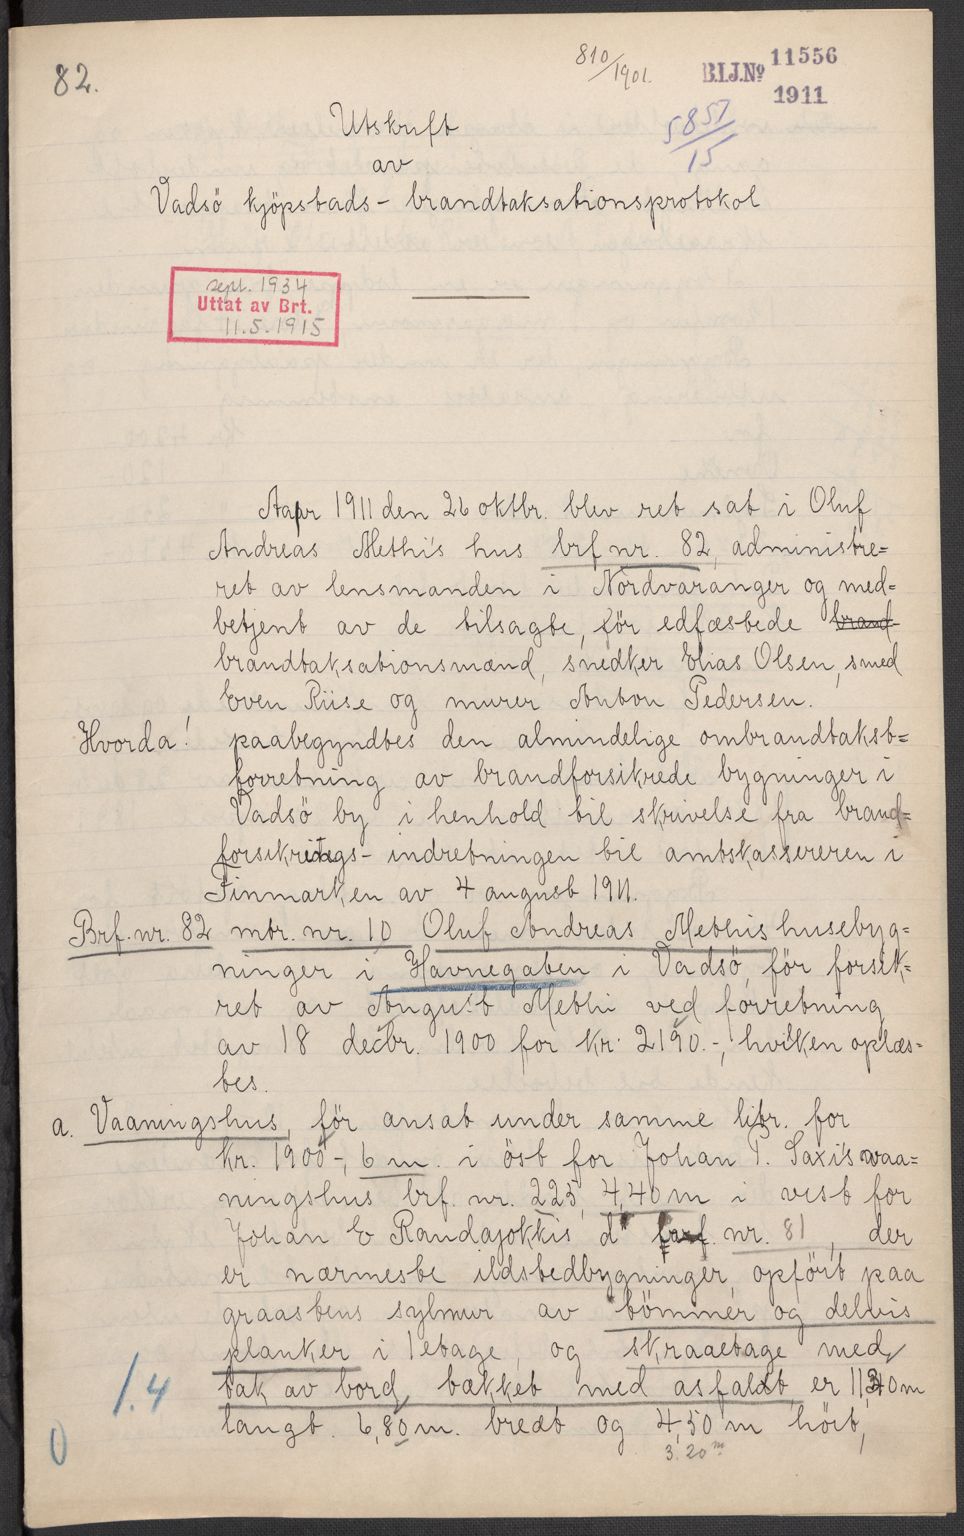 82.
810/1901.
B.I.J.Nº 11556
1911
5857/15
Utskrift
av
Vadsö kjöpstads- brandtaksationsprotokol
sept. 1934
Uttat av Brt.
11.5.1915
Aar 1911 den 26 oktbr. blev ret sat i Oluf
Andreas Methi's hus brf. nr. 82, administre=
ret av lensmanden i Nordvaranger og med=
betjent av de tilsagte, för edfæstede brand
brandtaksationsmænd, snedker Elias Olsen, smed
Even Riise og murer Anton Pedersen.
Hvorda! paabegyndtes den almindelige ombrandtakst=
forretning av brandforsikrede bygninger i
Vadsö by i henhold til skrivelse fra brand=
forsikrings- indretningen til amtskassereren i
Finmarken av 4 august 1911.
Brf. nr. 82 mtr. nr. 10 Oluf Andreas Methis husebyg=
ninger i Havnegaten i Vadsö, för forsik=
ret av August Methi ved forretning
av 18 decbr. 1900 for kr. 2190.-, hvilken oplæs=
tes.
a. Vaaningshus, för ansat under samme litr. for
kr. 1900-, 6 m. i öst for Johan P. Saxi's vaa=
ningshus brf. nr. 225, 4,40 m i vest for
Johan E Randajokkis do brf. nr. 81, der
er nærmeste ildstedbygninger, opfört paa
graastens sylmur av tömmer og delvis
planker i 1 etage, og skraaetage med
tak av bord, tækket med asfalt, er 11,30 m
langt. 6,80 m. bredt og 4,50 m höit,
3.20 m
1.4
0